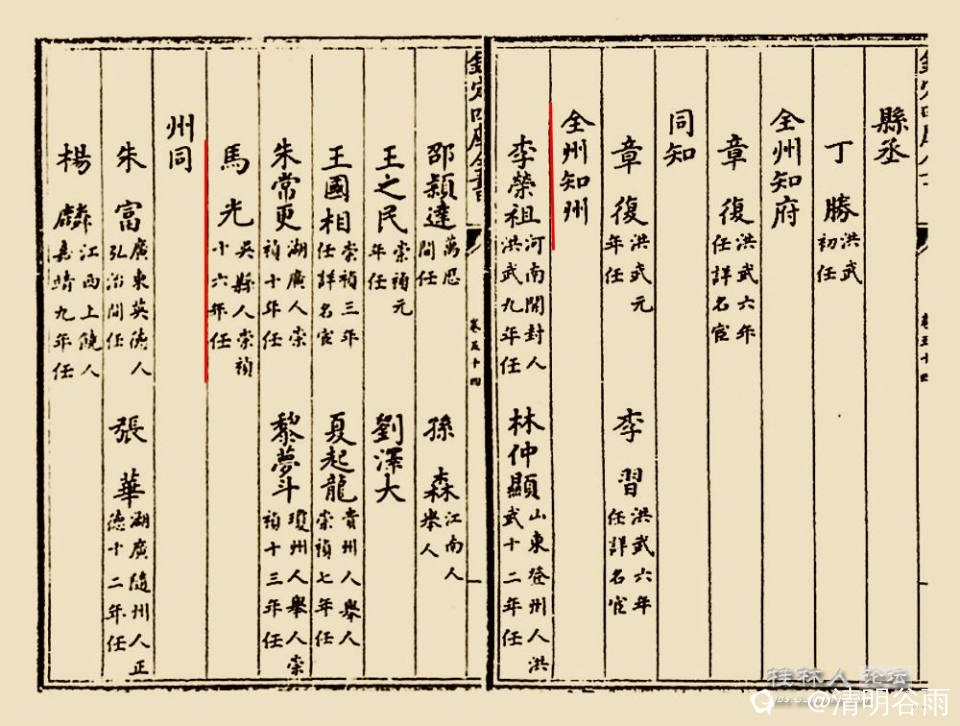 欽定四庫全書
卷五十四
縣丞
丁勝 洪武初任
全州知府
章復 洪武六年任詳名宦
同知
章復 洪武元年任 李習 洪武六年任詳名宦
全州知州
李榮祖 河南開封人洪武九年任 林仲顯 山東登州人洪武十二年任
欽定四庫全書
卷五十四
邵穎達 萬厯間任 孫森 江南人舉人
王之民 崇禎元年任 劉澤大
王國相 崇禎三年任詳名宦 夏起龍 貴州人舉人崇禎七年任
朱常更 湖廣人崇禎十年任 黎夢斗 瓊州人舉人崇禎十三年任
馬光 吳縣人崇禎十六年任
州同
朱富 廣東英德人弘治間任 張華 湖廣隨州人正德十二年任
楊麟 江西上饒人嘉靖九年任
桂林人论坛
@清明谷雨